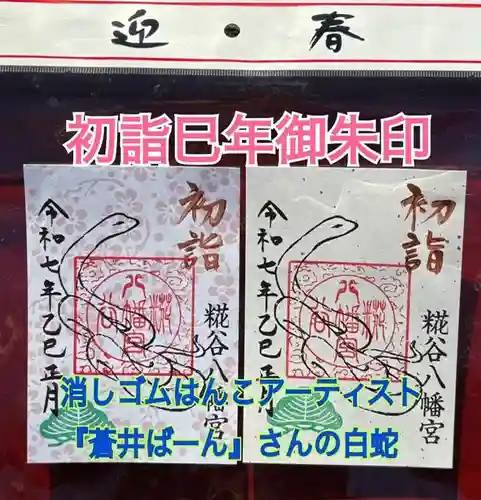 迎・春
初詣巳年御朱印
初詣
令和七年乙巳正月
糀谷八幡宮
初詣
令和七年乙巳正月
糀谷八幡宮
消しゴムはんこアーティスト
『蒼井ばーん』さんの白蛇